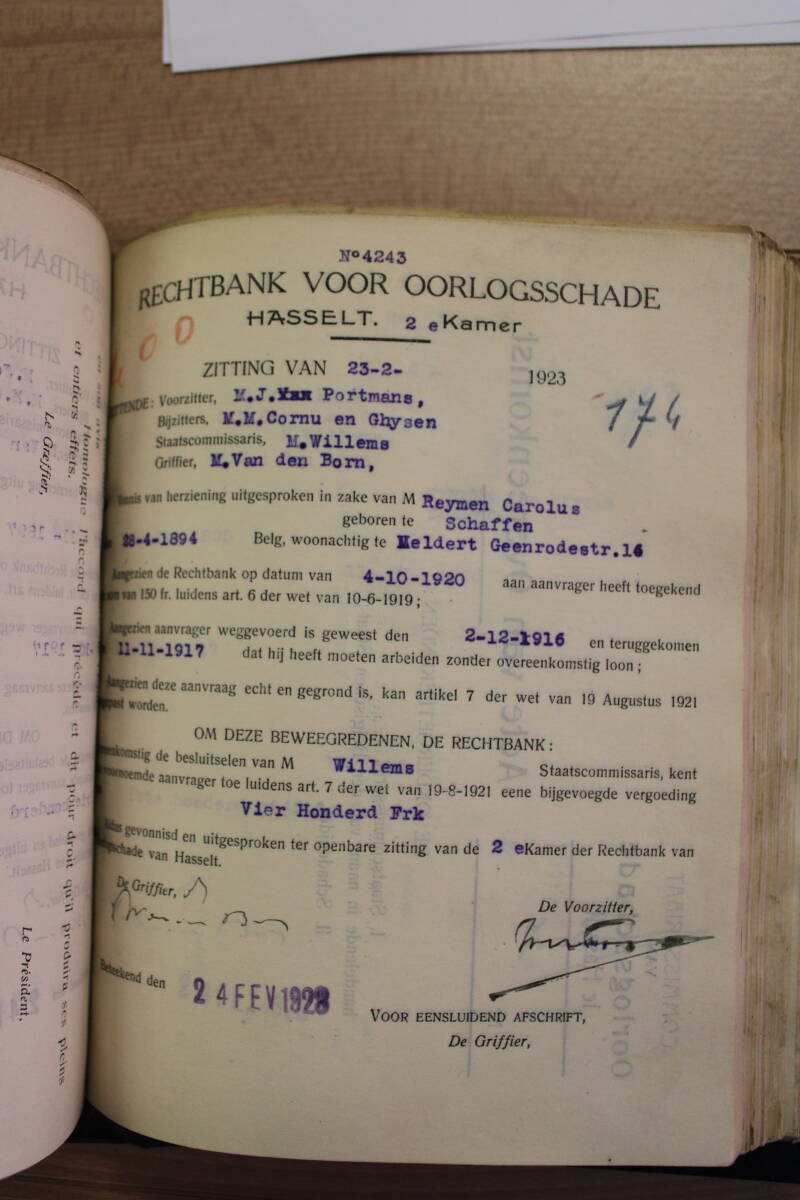 Nº4243
RECHTBANK VOOR OORLOGSSCHADE
HASSELT. 2 eKamer
400
ZITTING VAN 23-2- 1923
174
TENDE: Voorzitter, M.J. Portmans,
Bijzitters, M.M.Cornu en Ghysen
Staatscommissaris, M.Willems
Griffier, M.Van den Born,
van herziening uitgesproken in zake van M Reymen Carolus
geboren te Schaffen
28-4-1894 Belg, woonachtig te Meldert Geenrodestr.16
Aangezien de Rechtbank op datum van 4-10-1920 aan aanvrager heeft toegekend
van 150 fr. luidens art. 6 der wet van 10-6-1919;
Aangezien aanvrager weggevoerd is geweest den 2-12-1916 en teruggekomen
11-11-1917 dat hij heeft moeten arbeiden zonder overeenkomstig loon;
Aangezien deze aanvraag echt en gegrond is, kan artikel 7 der wet van 19 Augustus 1921
worden.
OM DEZE BEWEEGREDENEN, DE RECHTBANK:
komstig de besluitselen van M Willems Staatscommissaris, kent
noemde aanvrager toe luidens art. 7 der wet van 19-8-1921 eene bijgevoegde vergoeding
Vier Honderd Frk
gevonnisd en uitgesproken ter openbare zitting van de 2 eKamer der Rechtbank van
schade van Hasselt.
De Griffier,
De Voorzitter,
Beteekend den 24 FEV 1923
VOOR EENSLUIDEND AFSCHRIFT,
De Griffier,
Homologue l'accord qui précède et dit pour droit qu'il produira ses pleins
et entiers effets.
Le Greffier,
Le Président,